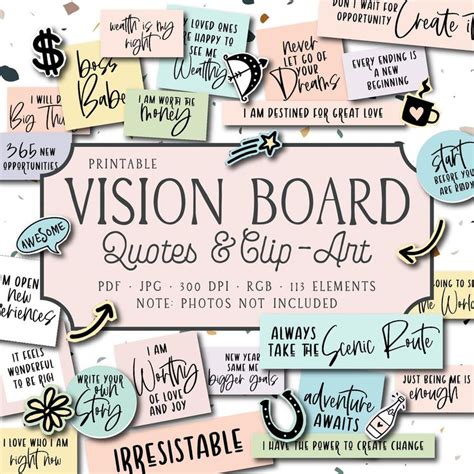 wealth is my
right
MY LOVED ONES
ARE HAPPY TO
SEE ME
Wealthy
DON'T WAIT FOR
OPPORTUNITY
Create it
$
boss
Babe
never
LET GO OF
YOUR
Dreams
EVERY ENDING IS
A NEW
BEGINNING
I WILL DO
I AM WORTH THE
money
I AM DESTINED FOR GREAT LOVE
365 NEW
OPPORTUNITIES
start
BEFORE YOU
ARE READY
PRINTABLE
VISION BOARD
Quotes & Clip-Art
PDF · JPG · 300 DPI · RGB · 113 ELEMENTS
NOTE: PHOTOS NOT INCLUDED
AWESOME
I'M OPEN
new
GOING TO
the World
ALWAYS
TAKE THE Scenic Route
IT FEELS
WONDERFUL
TO BE RICH
I AM
Worthy
OF LOVE
AND JOY
NEW YEAR
SAME ME
bigger goals
JUST BEING ME IS
enough
WRITE YOUR
OWN
Story
adventure
AWAITS
I LOVE WHO I AM
right now
IRRESISTABLE
I HAVE THE POWER TO CREATE CHANGE